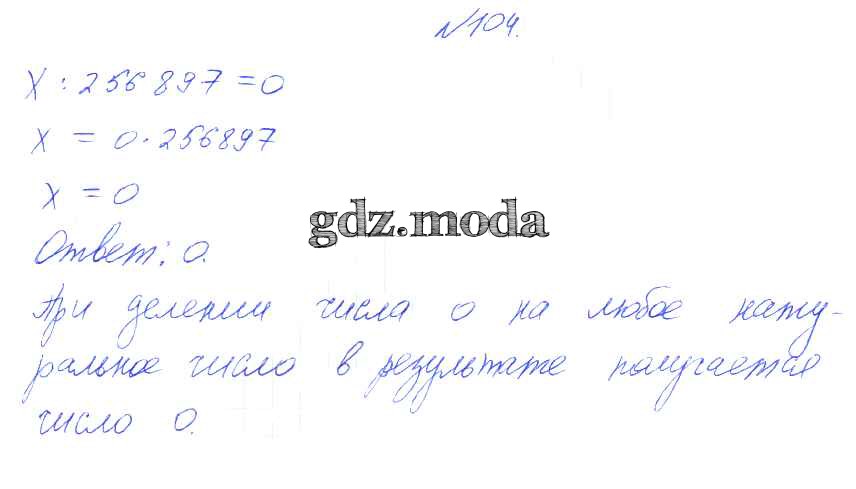 №104.
x : 256 897 = 0
x = 0 · 256897
x = 0
gdz.moda
Ответ: 0.
При делении числа 0 на любое нату-
ральное число в результате получается
число 0.